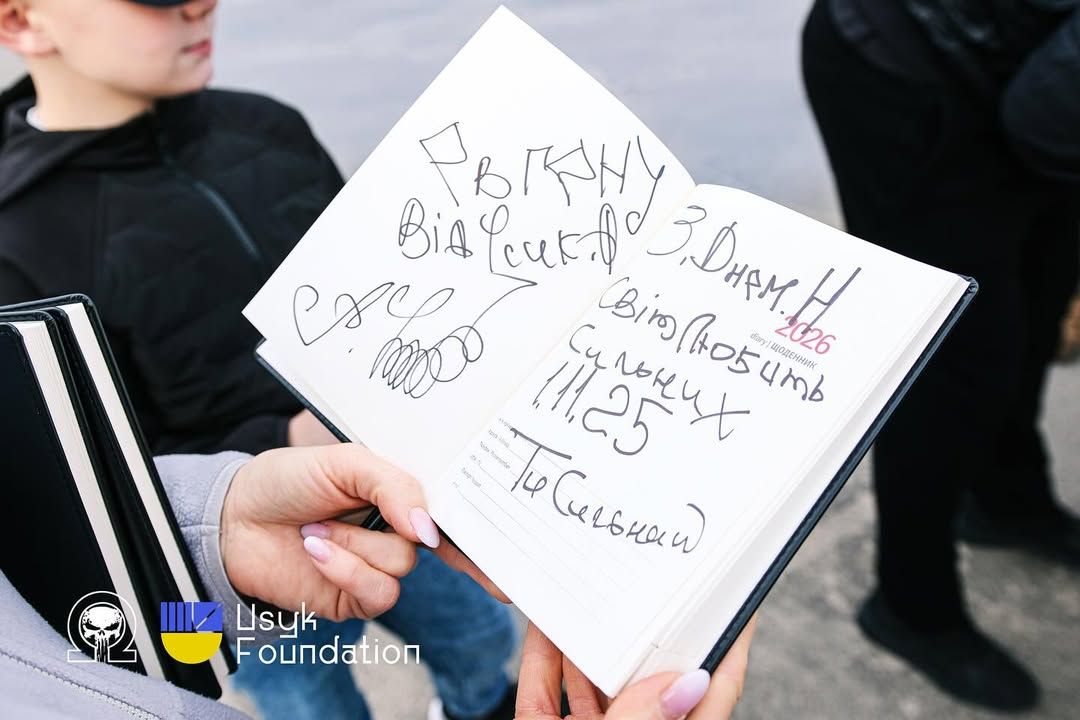 від Усик. О
З. Днем. Н
2026
diary | ЩОДЕННИК
Світ Любить
Сильних
1.11.25
Ти Сильний
Usyk
Foundation